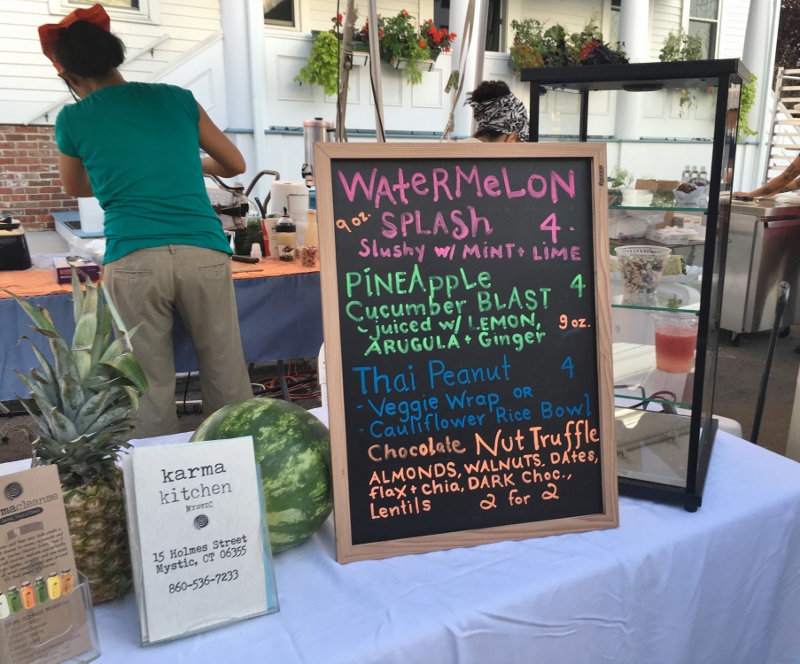 WATERMELON
9 oz. SPLASH 4.
Slushy w/ MiNT + LiME
PiNEAppLe 4
Cucumber BLAST
juiced w/ LEMON, 9 oz.
ARUGULA + Ginger
Thai Peanut 4
- Veggie Wrap OR
- Cauliflower Rice Bowl
Chocolate Nut Truffle
ALMONDS, WALNUTS, DAtes,
flax + chia, DARK Choc.,
Lentils 2 for 2
karma
kitchen
MYSTIC
15 Holmes Street
Mystic, CT 06355
860-536-7233
macleanse